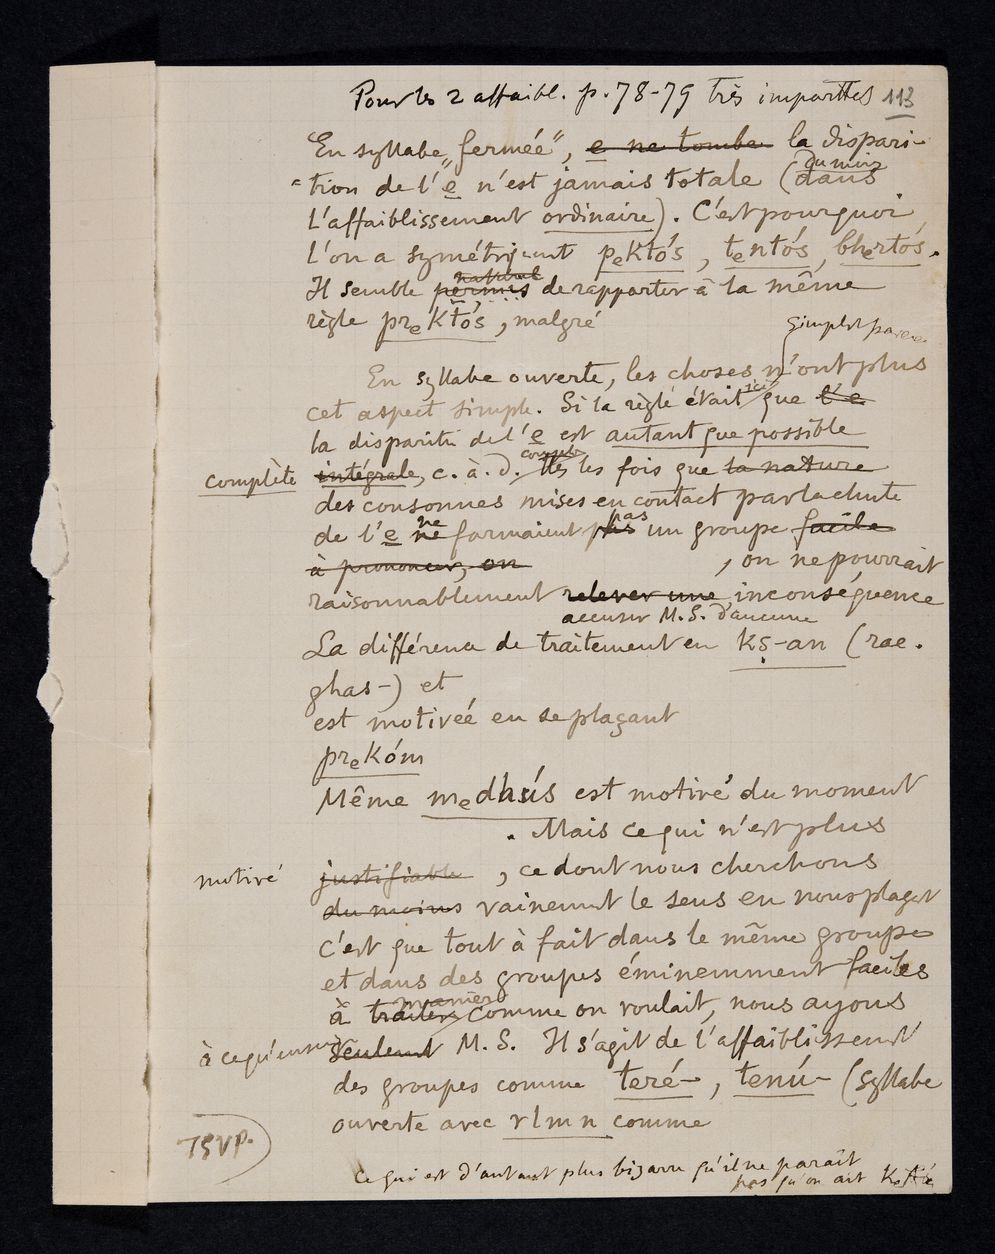 Pour les 2 affaibl. p. 78-79 très importtes 113
En syllabe „fermée", e ne tombe la dispari-
-tion de l'e n'est jamais totale (dans du moins
l'affaiblissement ordinaire). C'est pourquoi
l'on a symétriqunt pₑktós, tₑntós, bhₑrtós.
Il semble permis naturel de rapporter à la même
règle prₑktós, malgré
simplst parce
En syllabe ouverte, les choses n'ont plus
cet aspect simple. Si la règle était ici que l'e
la disparitn de l'e est autant que possible
complète intégrale, c. à. d. ttes les fois que la nature
des consonnes mises en contact par la chute
de l'e ne ne formaient plus pas un groupe facile
à prononcer, on , on ne pourrait
raisonnablement relever une inconséquence
accuser M.S. d'aucune
La différence de traitement en kṣ-an (rac.
ghas-) et
est motivée en se plaçant
prₑkóm
Même mₑdhús est motivé du moment
. Mais ce qui n'est plus
motivé justifiable , ce dont nous cherchons
du moins vainement le sens en nous plaçat
c'est que tout à fait dans le même groupe
et dans des groupes éminemment faciles
à traiter manier comme on voulait, nous ayons
à ce qu'ensuite seulemt M.S. Il s'agit de l'affaiblissemt
des groupes comme teré-, tenú- (syllabe
ouverte avec r l m n comme
TSVP.
ce qui est d'autant plus bizarre qu'il ne paraît
pas qu'on ait